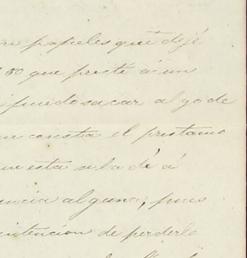 papeles que dejé
que presté á un
puedo sacar algo de
consta el prestamo
esta se la dé á
alguna, pues
intencion de perderlo